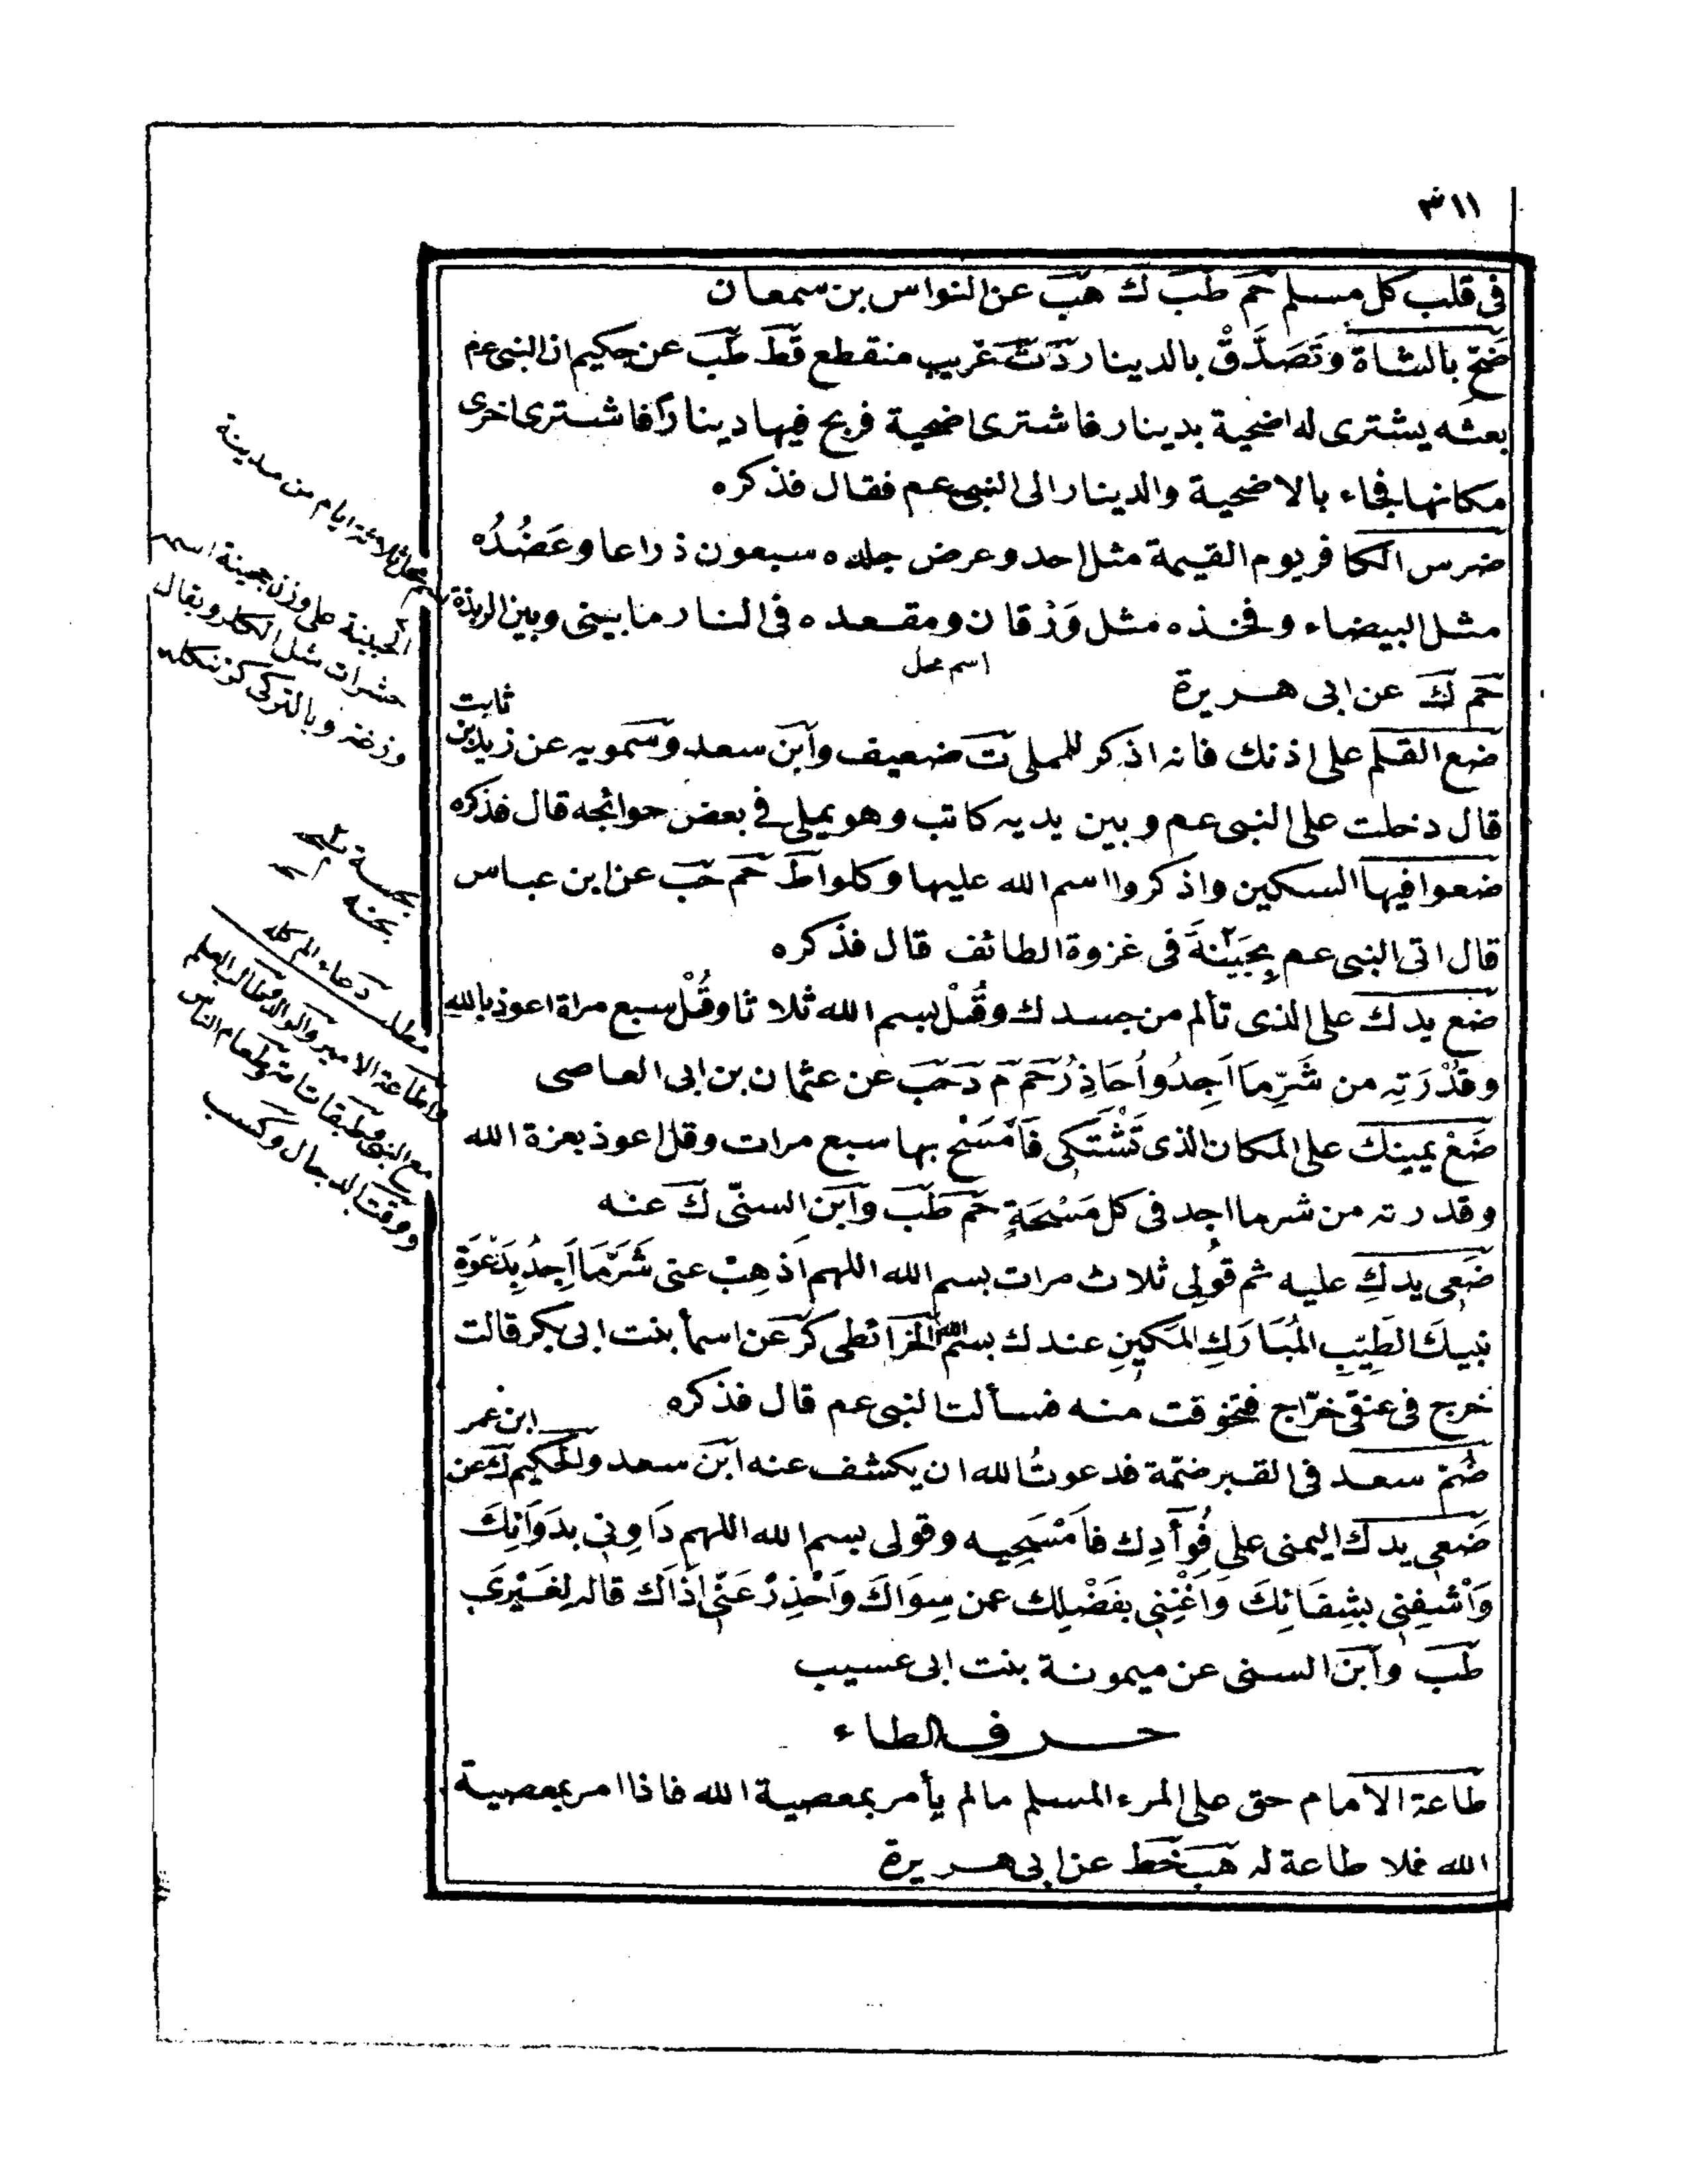 ٣١١
فى قلب كل مسلم حم طب ك هب عن النواس بن سمعان
ضَحِّ بالشاة وتَصَدَّقْ بالدينار د ت غريب منقطع قط طب عن حكيم ان النبى عم
بعثه يشترى له اضحية بدينار فاشترى اضحية فربح فيها دينارًا فاشترى اخرى
مكانها فجاء بالاضحية والدينار الى النبى عم فقال فذكره
ضرس الكافر يوم القيمة مثل احد وعرض جلده سبعون ذراعا وعَضُدُه
مثل البيضاء وفخذه مثل وَرْقان ومقعده فى النار ما بينى وبين الربذة
اسم محل
حم ك عن ابى هريرة
ضع القلم على اذنك فانه اذكر للمملى ت ضعيف وابن سعد وسمويه عن زيد بن ثابت
قال دخلت على النبى عم وبين يديه كاتب وهو يملى فى بعض حوائجه قال فذكره
ضعوا فيها السكين واذكروا اسم الله عليها وكلوا ط حم حب عن ابن عباس
قال اتى النبى عم بِجَبِيْنَةَ فى غزوة الطائف قال فذكره
ضع يدك على الذى تألم من جسدك وقُلْ بسم الله ثلاثا وقُلْ سبع مراة اعوذ بالله
وقُدْرَتِه من شَرِّ ما اَجِدُ واُحَاذِرُ حم م د حب عن عثمان بن ابى العاصى
ضَعْ يمينك على المكان الذى تَشْتَكى فَاَمْسَحْ بها سبع مرات وقل اعوذ بعزة الله
وقدرته من شر ما اجد فى كل مَسْحَةٍ حم طب وابن السنّى ك عنه
ضَعِى يدكِ عليه ثم قُولِى ثلاث مرات بسم الله اللهم اَذهِبْ عنى شَرَّ مَا اَجِدُ بِدَعْوَةِ
نبيكَ الطَيِّبِ المُبَارَكِ المَكينِ عندك بسم الله الخرائطى كر عن اسمأ بنت ابى بكر قالت
خرج فى عنقى خرّاج فتخوقت منه فسألت النبى عم قال فذكره
ضُمّ سعد فى القبر ضمّة فدعوتُ الله ان يكشف عنه ابن سعد والحكيم ك عن ابن عمر
ضَعِى يدك اليمنى على فُوآدِك فاَمْسَحِيه وقولى بسم الله اللهم دَاوِنِى بدَوَائِكَ
وَاَشْفِنِى بشِفَائِكَ وَاَغْنِنِى بفَضْلِك عمن سِوَاكَ وَاَحْذِرْ عَنِّى اذَاكَ قاله لِغَيْرِى
طب وابن السنى عن ميمونة بنت ابى عسيب
حرف الطاء
طاعة الامام حق على المرء المسلم ما لم يأمر بمعصية الله فاذا امر بمعصية
الله فلا طاعة له هب خط عن ابى هريرة
ثلاثة ايام من مدينة
الجبينة على وزن جهينة اسم
حشرات مثل ويقال
وزغنه وبالتركى
مطلب دعاء
واطاعة الامير والوالد وطالب العلم
مع النبى وطبقات امته وطعام الناس
ووقت الدجال وكسب